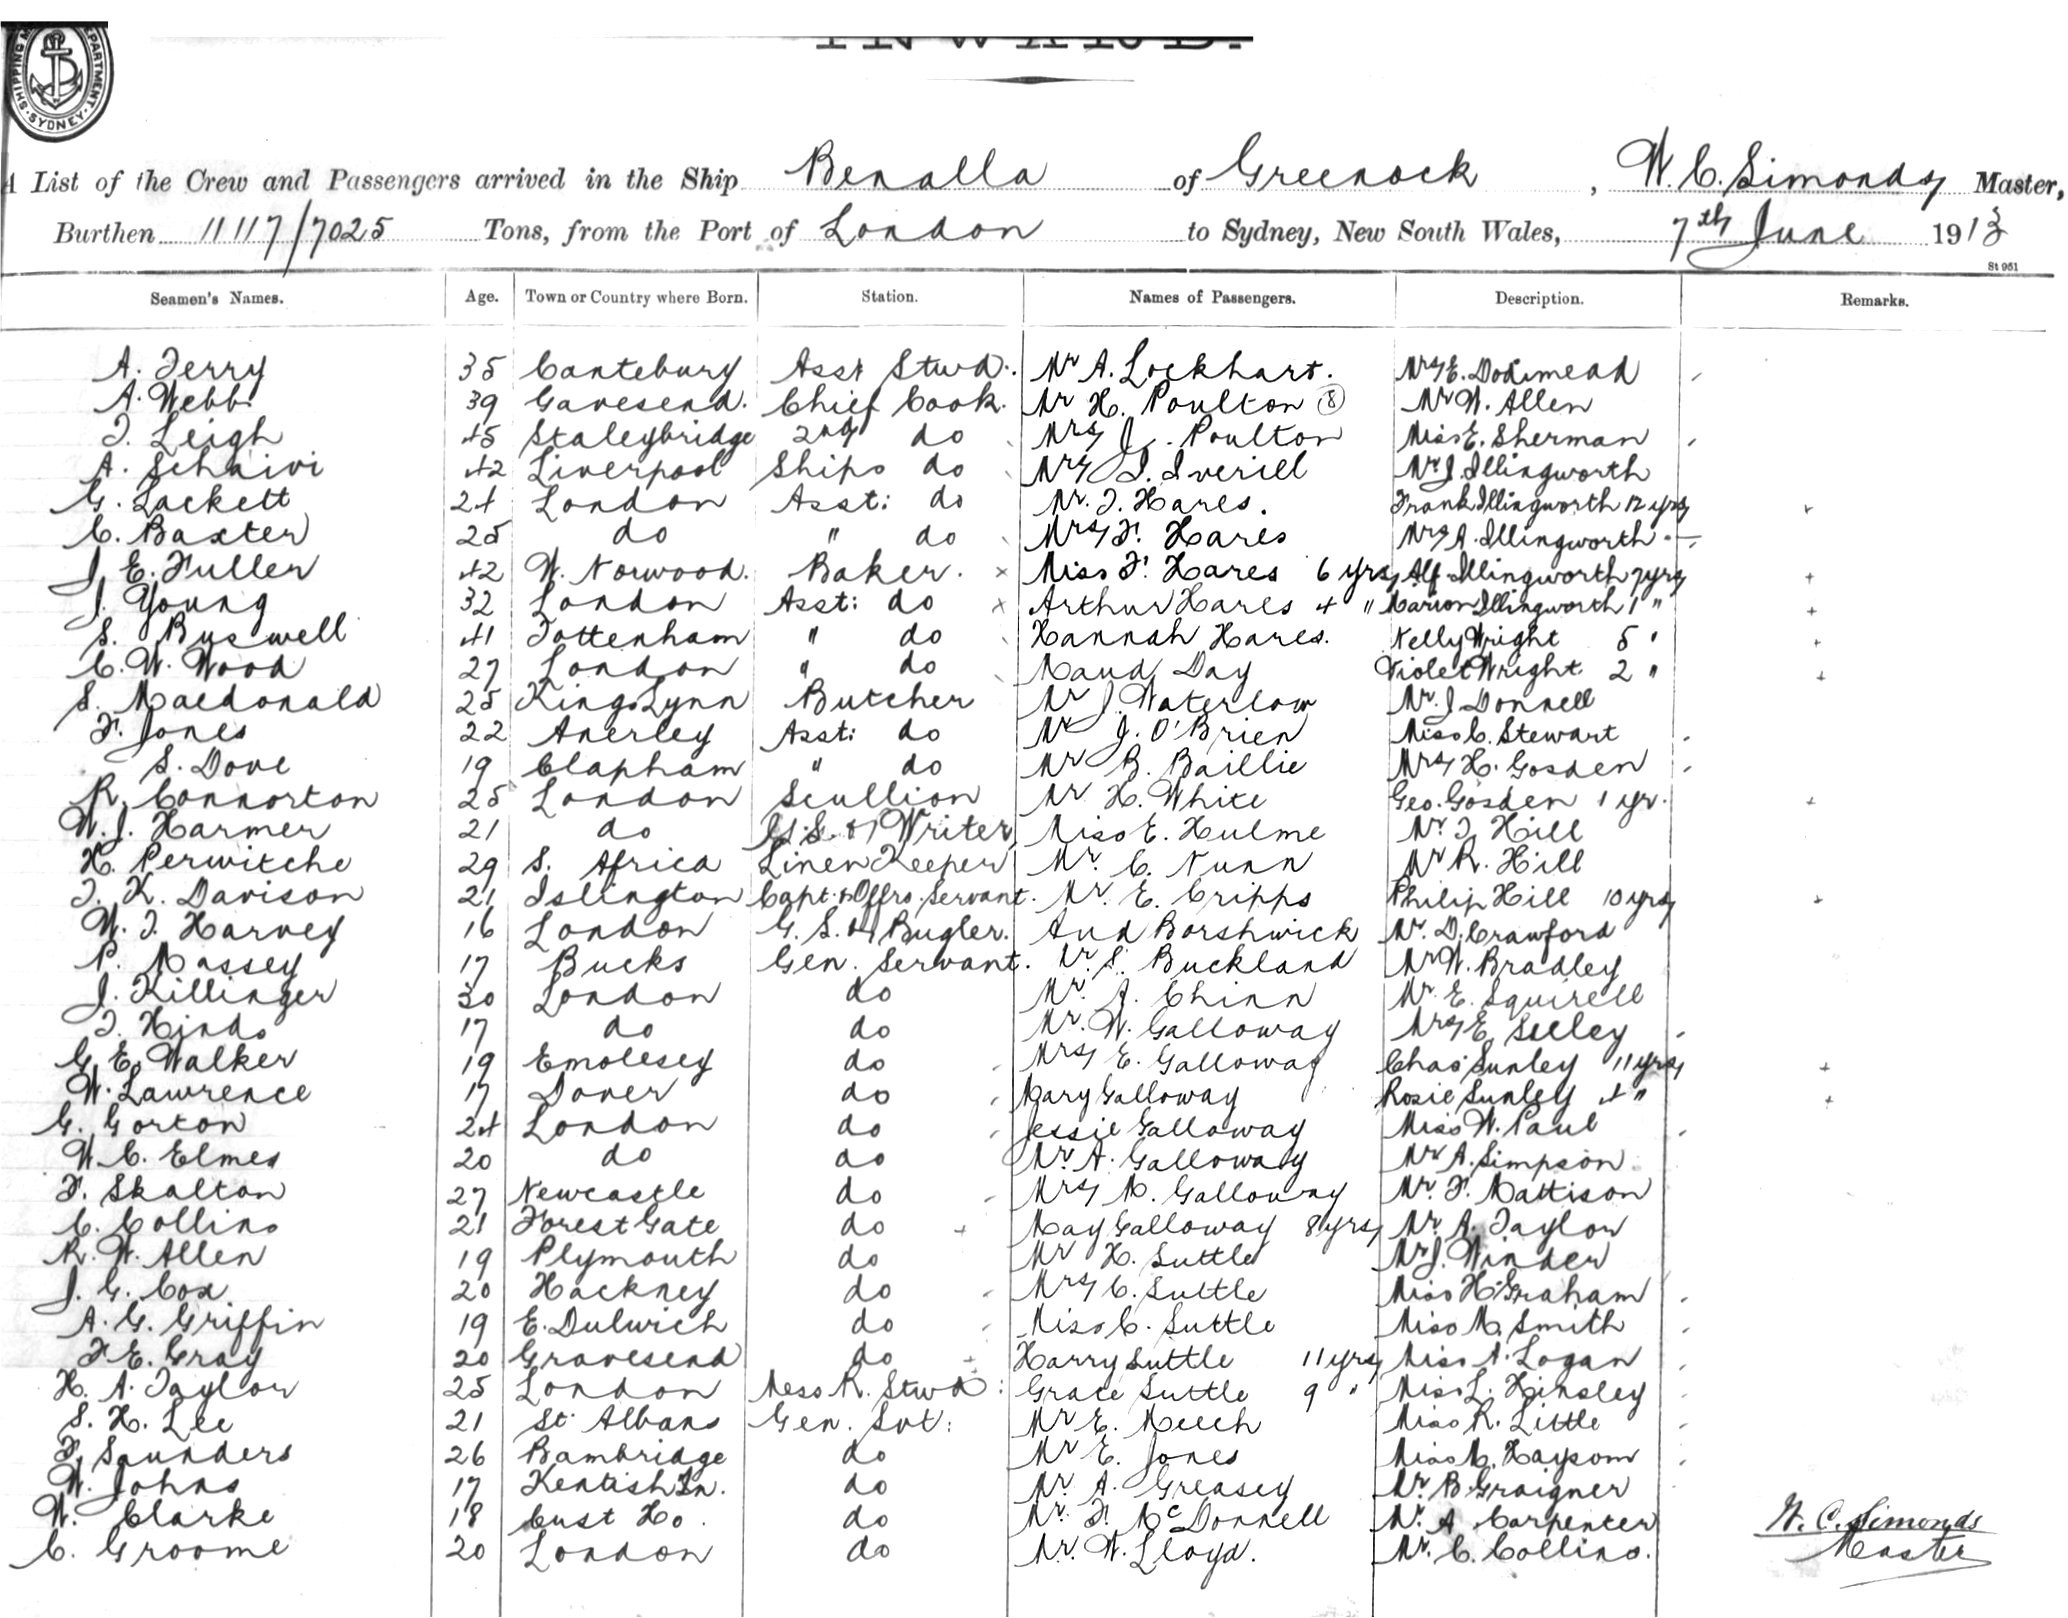 SHIPPING M DEPARTMENT. SYDNEY.
INWARD.
A List of the Crew and Passengers arrived in the Ship Benalla of Greenock, W. C. Simonds Master,
Burthen 11117/7025 Tons, from the Port of London to Sydney, New South Wales, 7th June 1913
St 961
Seamen's Names. Age. Town or Country where Born. Station. Names of Passengers. Description. Remarks.
A. Terry 35 Cantebury Asst Stwd. Mr A. Lockhart. Mrs E. Dodimead
A. Webb. 39 Gavesend. Chief Cook. Mr H. Poulton (8) Mr W. Allen
T. Leigh 45 Staleybridge 2nd do Mrs J. Poulton Miss E. Sherman
A. Schnivi 42 Liverpool Ships do Mrs I. Iverill Mr J. Illingworth
G. Lackett 24 London Asst: do Mr. T. Hares. Frank Illingworth 12 yrs
C. Baxter 25 do " do Mrs F. Hares Mrs A. Illingworth
J. E. Fuller 42 W. Norwood. Baker. Miss F. Hares 6 yrs Alf Illingworth 7 yrs
J. Young 32 London Asst: do Arthur Hares 4 " Marion Illingworth 1 "
S. Buswell 41 Tottenham " do Hannah Hares. Nelly Wright 5 "
C. W. Wood 27 London " do Maud Day Violet Wright 2 "
S. Macdonald 25 Kings Lynn Butcher Mr J. Waterlow Mr. J Donnell
F. Jones 22 Anerley Asst: do Mr J. O'Brien Miss C. Stewart
S. Dove 19 Clapham " do Mr B. Baillie Mrs H. Gosden
R. Connorton 25 London Scullion Mr H. White Geo. Gosden 1 yr.
W. J. Harmer 21 do G. S. & Writer Miss E. Hulme Mr. T Hill
H. Perwitche 29 S. Africa Linen Keeper Mr. C. Nunn Mr R. Hill
T. K. Davison 21 Islington Capt. & Offrs. Servant. Mr. E. Cripps Philip Hill 10 yrs
W. T. Harvey 16 London G. S. & Bugler. And Borshwick Mr. D. Crawford
P. Massey 17 Bucks Gen. Servant. Mr. S. Buckland Mr W. Bradley
J. Killinger 30 London do Mr. J. Chinn Mr. E. Squirell
T. Hinds 17 do do Mr. W. Galloway Mrs E. Seeley
G. E. Walker 19 Emolesey do Mrs E. Galloway Chas Sunley 11 yrs
W. Lawrence 17 Dover do Mary Galloway Rosie Sunley 4 "
G. Gorton 24 London do Jessie Galloway Miss W. Paul
W. C. Elmes 20 do do Mr. A. Galloway Mr A. Simpson
F. Skalton 27 Newcastle do Mrs M. Galloway Mr. F. Mattison
C. Collins 21 Forest Gate do May Galloway 8 yrs Mr. A. Taylor
R. W. Allen 19 Plymouth do Mr H. Suttle Mr J. Winder
J. G. Cox 20 Hackney do Mrs C. Suttle Miss H. Graham
A. G. Griffin 19 E. Dulwich do Miss C. Suttle Miss M. Smith
F E. Gray 20 Gravesend do Harry Suttle 11 yrs Miss A. Logan
H. A. Taylor 25 London Mess R. Stwd: Grace Suttle 9 " Miss L. Hinsley
S. H. Lee 21 St Albans Gen. Svt: Mr E. Meech Miss R. Little
F. Saunders 26 Bambridge do Mr E. Jones Miss M. Haysom
W. Johns 17 Kentish Tn. do Mr. A. Greasey Mr. B. Graigner
W. Clarke 18 Cust Ho. do Mr. F. McDonnell Mr. A Carpenter
C. Groome 20 London do Mr. W. Lloyd. Mr. C. Collins.
W. C. Simonds
Master